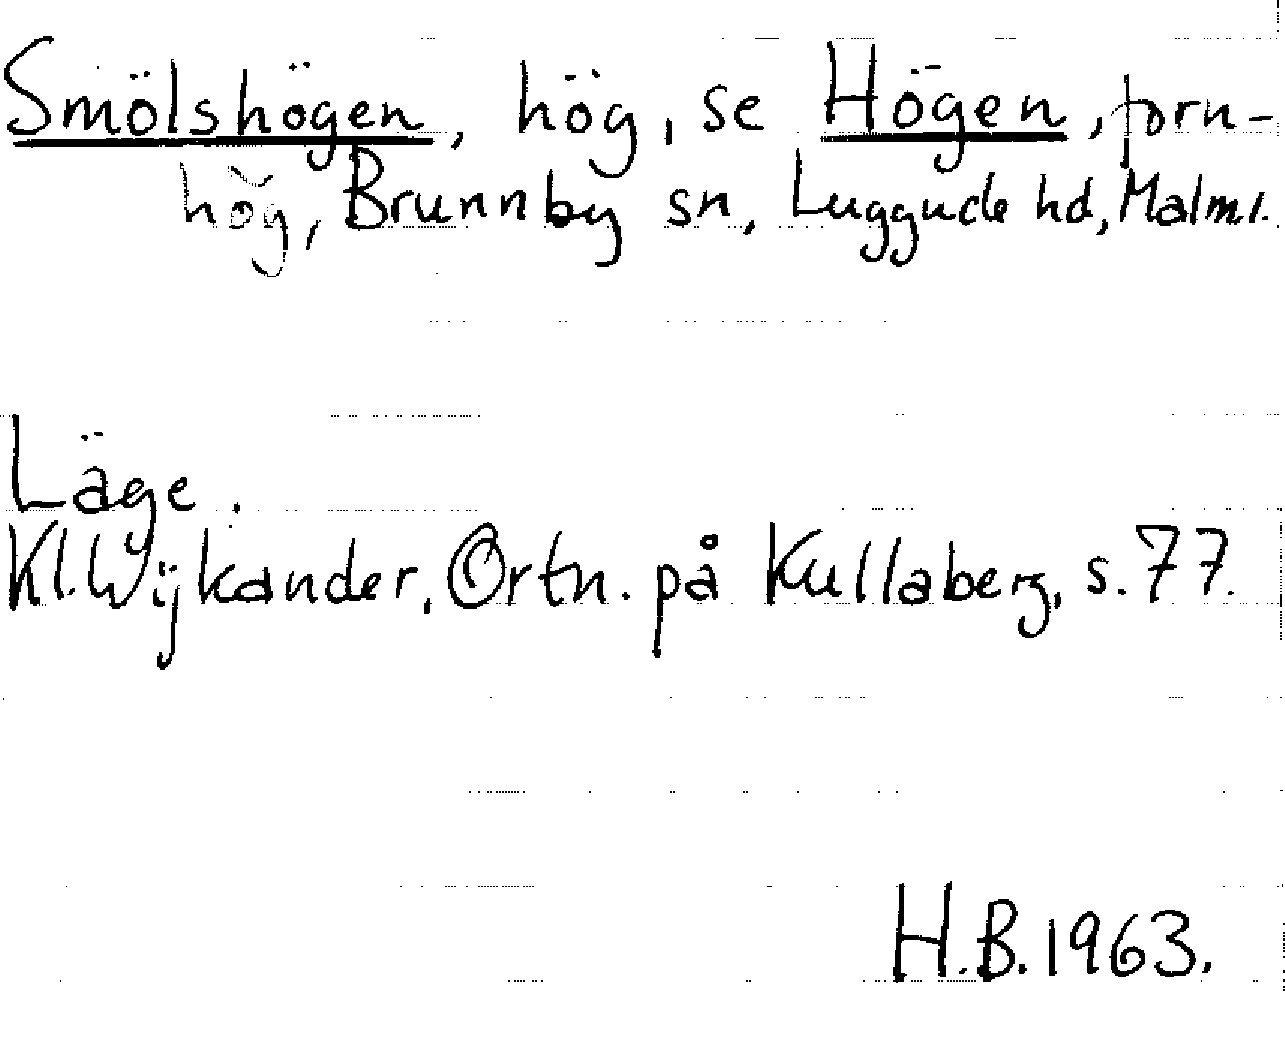 Smölshögen, hög, se Högen, forn-
hög, Brunnby sn, Luggude hd, Malml.
Läge.
Kl. Wijkander, Ortn. på Kullaberg, s. 77.
H.B. 1963.